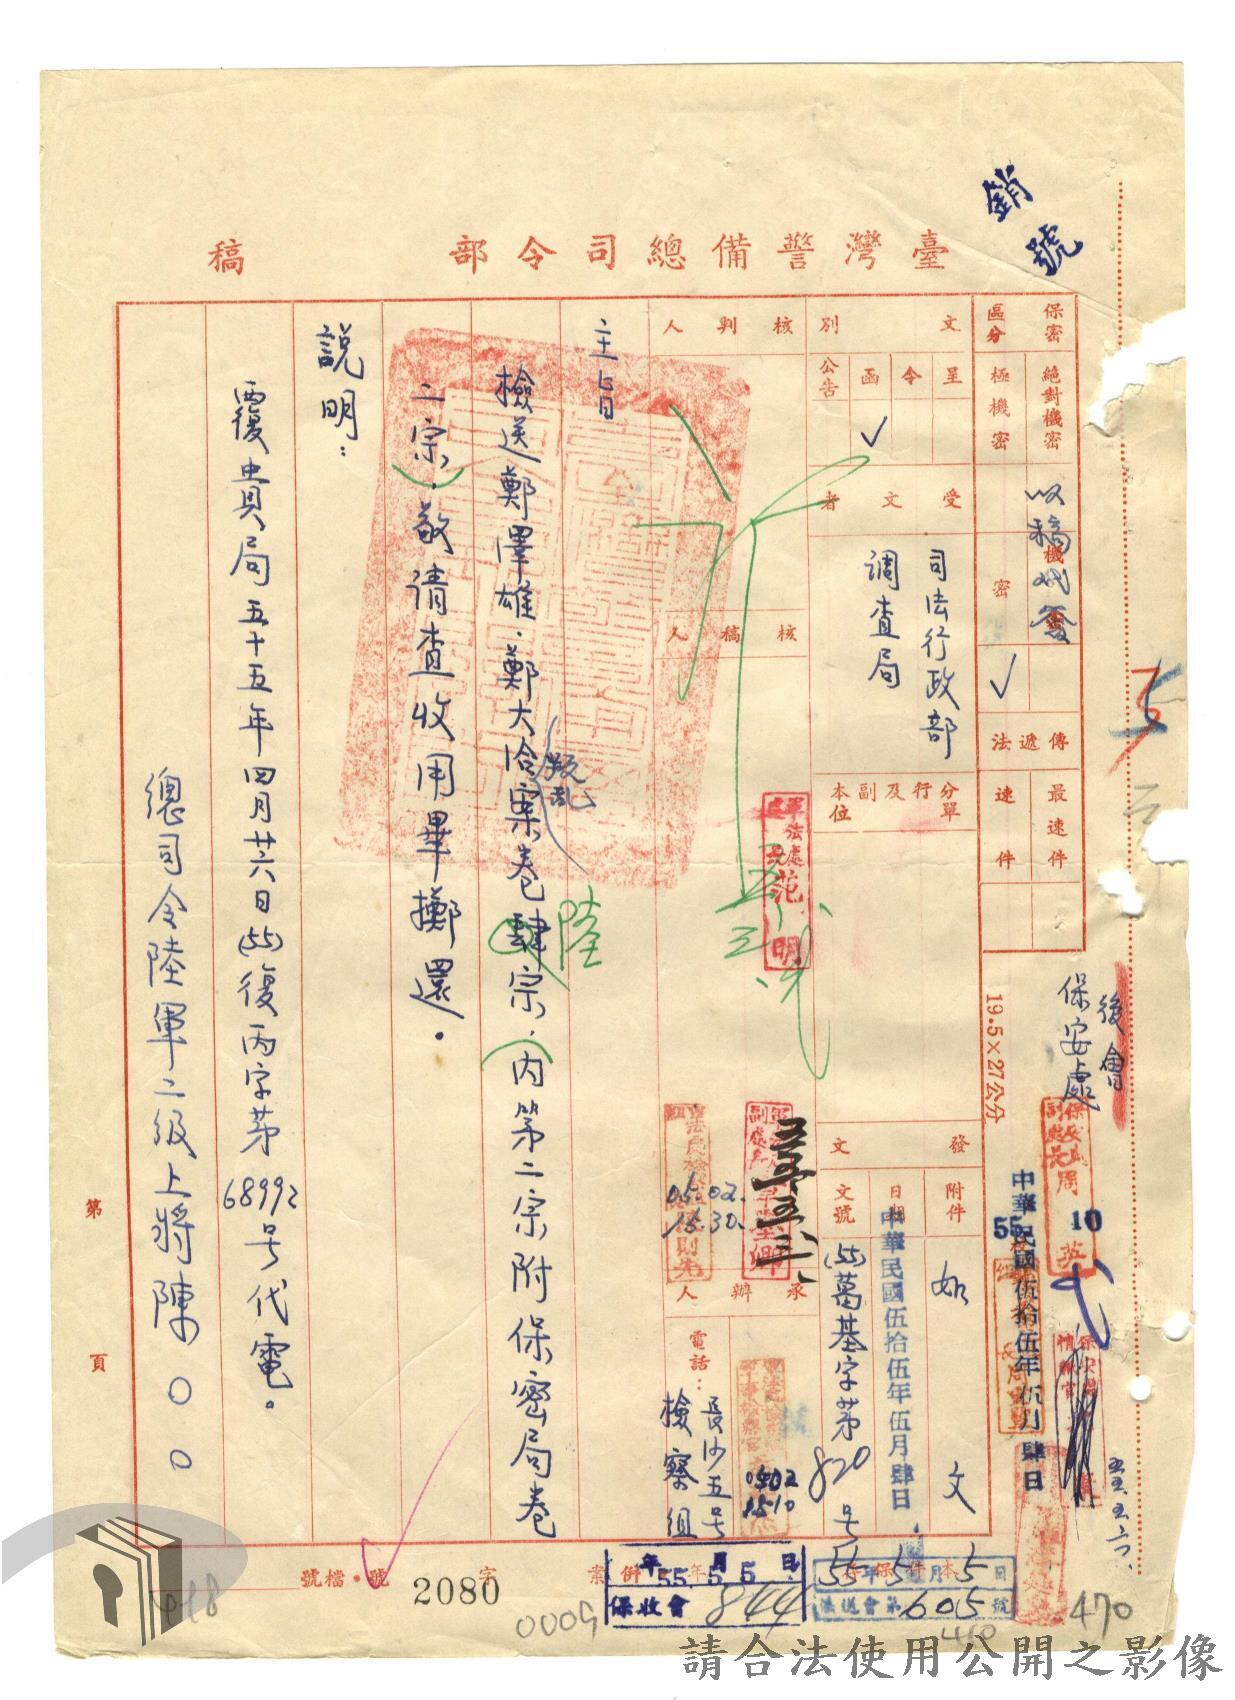 銷號
臺灣警備總司令部 稿
保密區分
絕對機密
極機密
機密
密 ✓
以稿代簽
傳遞法
最速件
速件
19.5×27公分
後會
保安處
中華民國伍拾伍年伍月肆日
五五六
文別
呈
令
函 ✓
公告
受文者
司法行政部
調查局
分行及副本
單位
發文
附件
如文
日期
中華民國伍拾伍年伍月肆日
文號
(55)葛基字第820號
核判人
核稿人
承辦人
軍法處
范明
05.02.
15.30
0502
1510
電話:長沙五号
檢察組
主旨
檢送鄭澤雄、鄭大洽叛亂案卷陸宗,內第二宗附保密局卷
二宗,敬請查收用畢擲還。
說明:
覆貴局五十五年四月廿六日(55)復丙字第68992号代電。
總司令陸軍二級上將陳○○
第 頁
檔號
字 號
併 案
2080
0009
55年5月5日
保收會 844
55年5月5日
法送會第605號
470
418
請合法使用公開之影像